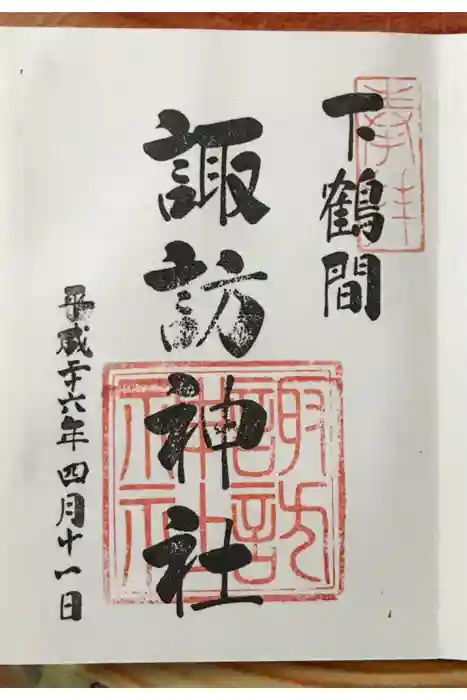 奉拝
下鶴間
諏訪神社
諏訪神社
平成二十六年四月十一日